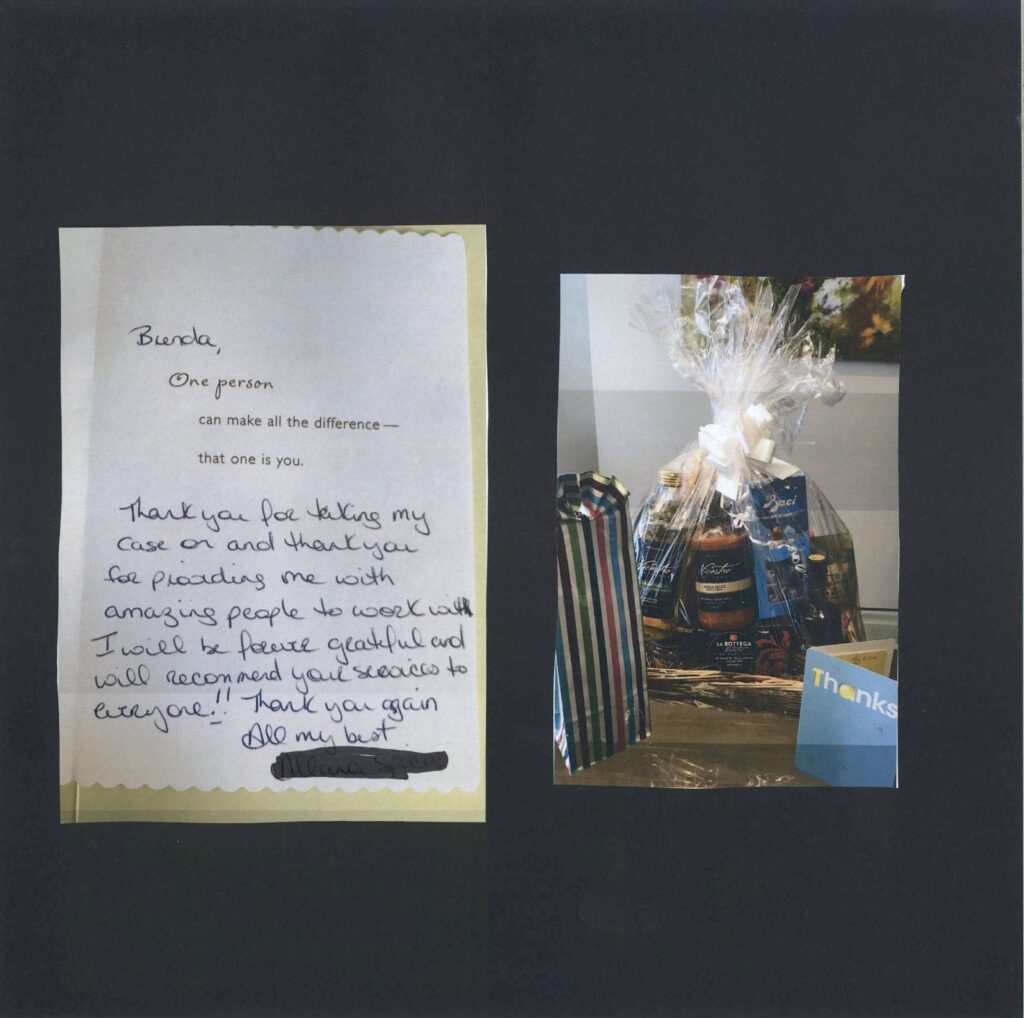 Brenda,
One person
can make all the difference—
that one is you.
Thank you for taking my
case on and thank you
for providing me with
amazing people to work with
I will be forever grateful and
will recommend your services to
everyone!! Thank you again
All my best
Baci
LA BOTTEGA
Thanks